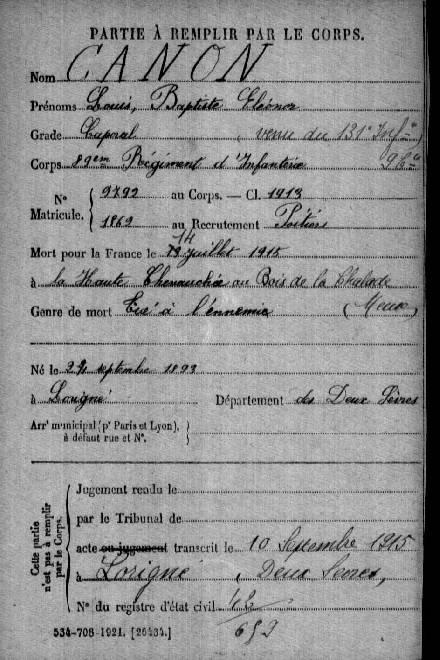 PARTIE À REMPLIR PAR LE CORPS.
Nom CANON
Prénoms Louis, Baptiste Eléonor
Grade Caporal, venu du 131e Inf
Corps 89em Régiment d'Infanterie
N° Matricule. 9792 au Corps. — Cl. 1913
1862 au Recrutement Poitiers
14
Mort pour la France le 13 Juillet 1915
à la Haute Chevauchée au Bois de la Chalade
Genre de mort Tué à l'ennemie (Meuse)
Né le septembre 1893
à Lorigné Département des Deux Sèvres
Arr^t municipal (p^r Paris et Lyon),
à défaut rue et N°.
Cette partie n'est pas à remplir par le Corps.
Jugement rendu le
par le Tribunal de
acte ou jugement transcrit le 10 Septembre 1915
à Lorigné, Deux Sevres,
N° du registre d'état civil
534-708-1921. [26434.]